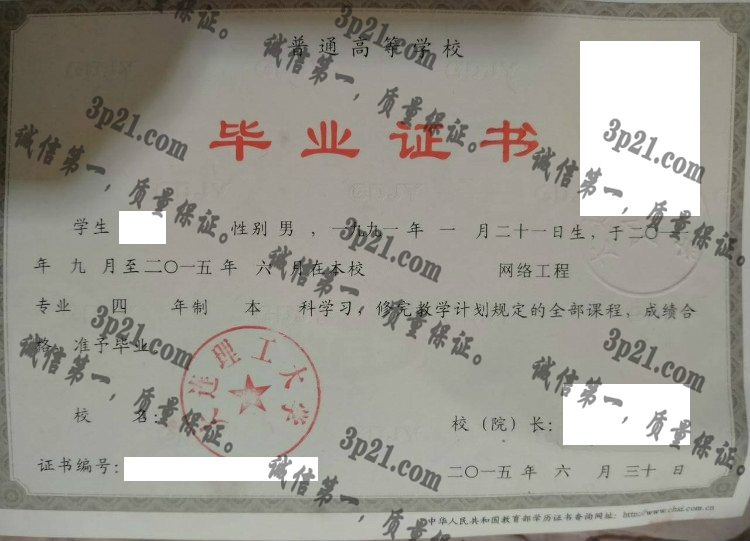 普通高等学校
毕业证书
学生 性别 男 ，一九九一年 一 月二十一日生，于二〇一一
年 九 月至二〇一五年 六 月在本校 网络工程
专业 四 年制 本 科学习，修完教学计划规定的全部课程，成绩合
格，准予毕业。
大连理工大学
校 名：
校（院）长：
证书编号：
二〇一五年 六 月 三十 日
中华人民共和国教育部学历证书查询网址：http://www.chsi.com.cn
3p21.com
诚信第一，质量保证。
3p21.com
诚信第一，质量保证。
3p21.com
诚信第一，质量保证。
3p21.com
诚信第一，质量保证。
3p21.com
诚信第一，质量保证。
3p21.com
诚信第一，质量保证。
3p21.com
诚信第一，质量保证。
诚信第一，质量保证。